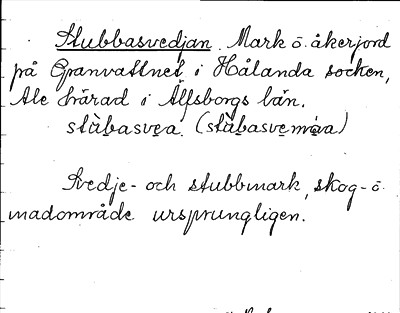 Stubbasvedjan. Mark o. åkerjord
på Granvattnet i Hålanda socken,
Ale härad i Älfsborgs län.
stùbasvea. (stùbasvemåra)
Svedje- och stubbmark, skog- o.
madområde ursprungligen.